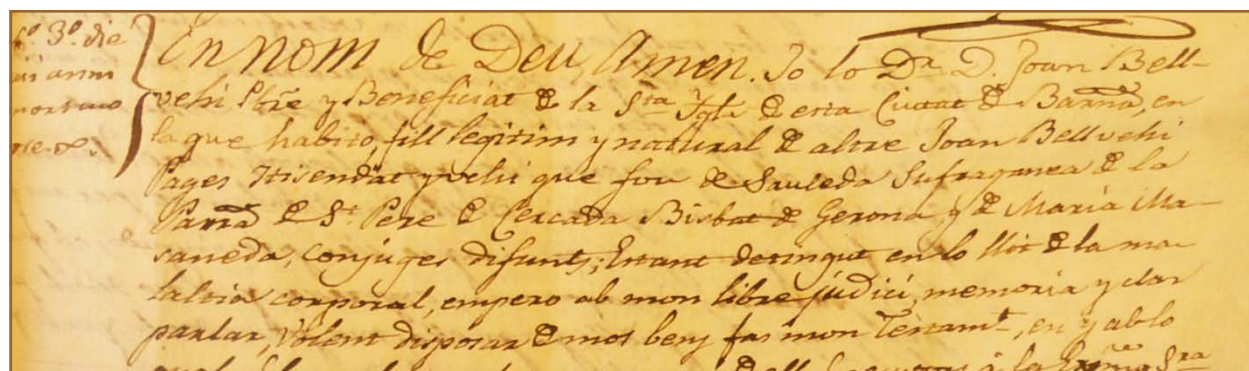 6º 3º die
anni
En nom de Deu, Amen. Jo lo Dr. D. Joan Bell-
vehi Pbre y Beneficiat de la Sta Igla de esta Ciutat de Barna, en
la que habito, fill legitim y natural de altre Joan Bellvehi
Pages Hisendat y vehi que fou de Sauleda Sufraganea de la
Parra de St Pere de Cercada Bisbat de Gerona y de Maria Ma-
saneda, conjuges difunts; Estant detingut en lo llit de la ma-
laltia corporal, empero ab mon libre judici, memoria y clar
parlar, Volent disposar de mos bens fas mon Testamt, en y ab lo
qual